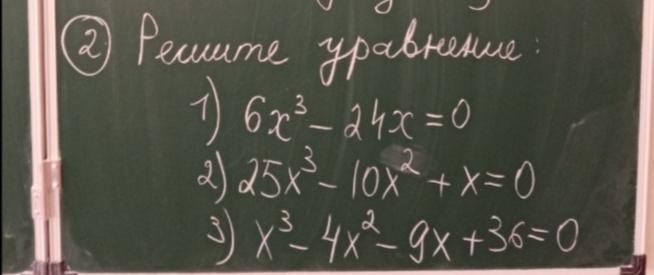 ② Решите уравнение:
1) 6x³ – 24x = 0
2) 25x³ – 10x² + x = 0
3) x³ – 4x² – 9x + 36 = 0